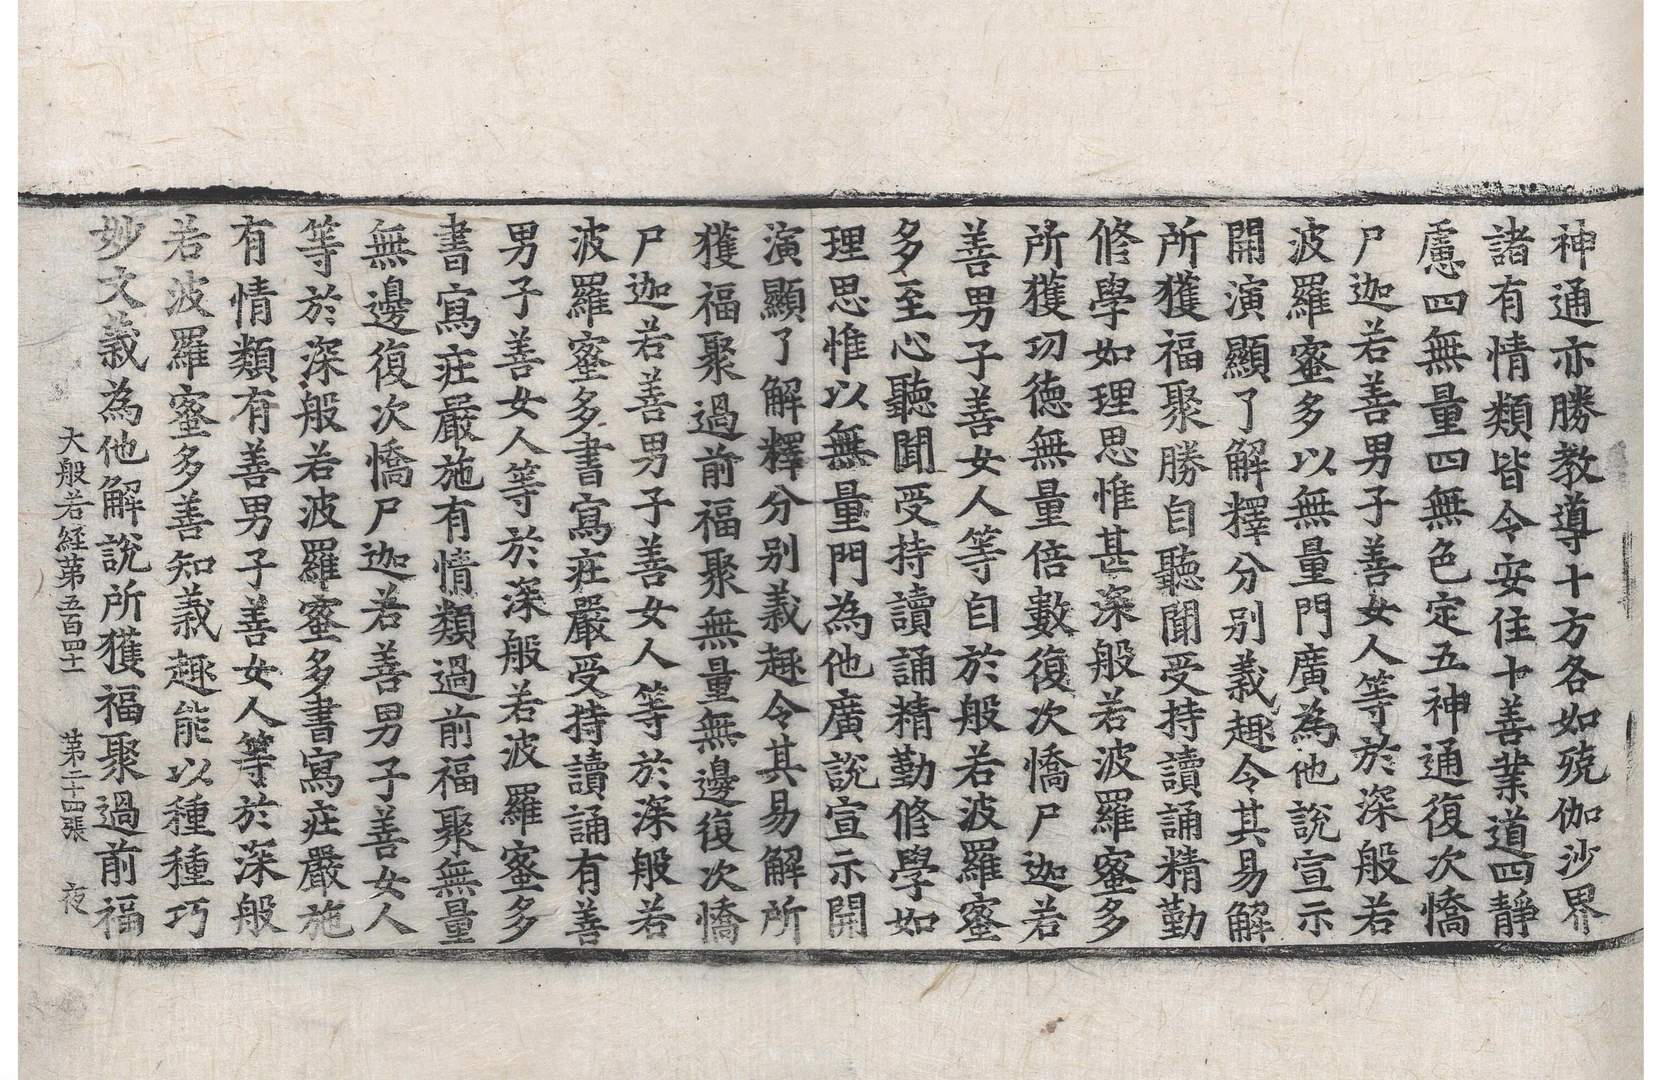 神通亦勝教導十方各如殑伽沙界
諸有情類皆令安住十善業道四靜
慮四無量四無色定五神通復次憍
尸迦若善男子善女人等於深般若
波羅蜜多以無量門廣為他說宣示
開演顯了解釋分別義趣令其易解
所獲福聚勝自聽聞受持讀誦精勤
修學如理思惟甚深般若波羅蜜多
所獲功德無量倍數復次憍尸迦若
善男子善女人等自於般若波羅蜜
多至心聽聞受持讀誦精勤修學如
理思惟以無量門為他廣說宣示開
演顯了解釋分別義趣令其易解所
獲福聚過前福聚無量無邊復次憍
尸迦若善男子善女人等於深般若
波羅蜜多書寫莊嚴受持讀誦有善
男子善女人等於深般若波羅蜜多
書寫莊嚴施有情類過前福聚無量
無邊復次憍尸迦若善男子善女人
等於深般若波羅蜜多書寫莊嚴施
有情類有善男子善女人等於深般
若波羅蜜多善知義趣能以種種巧
妙文義為他解說所獲福聚過前福
大般若經第五百四十 第二十四張 夜